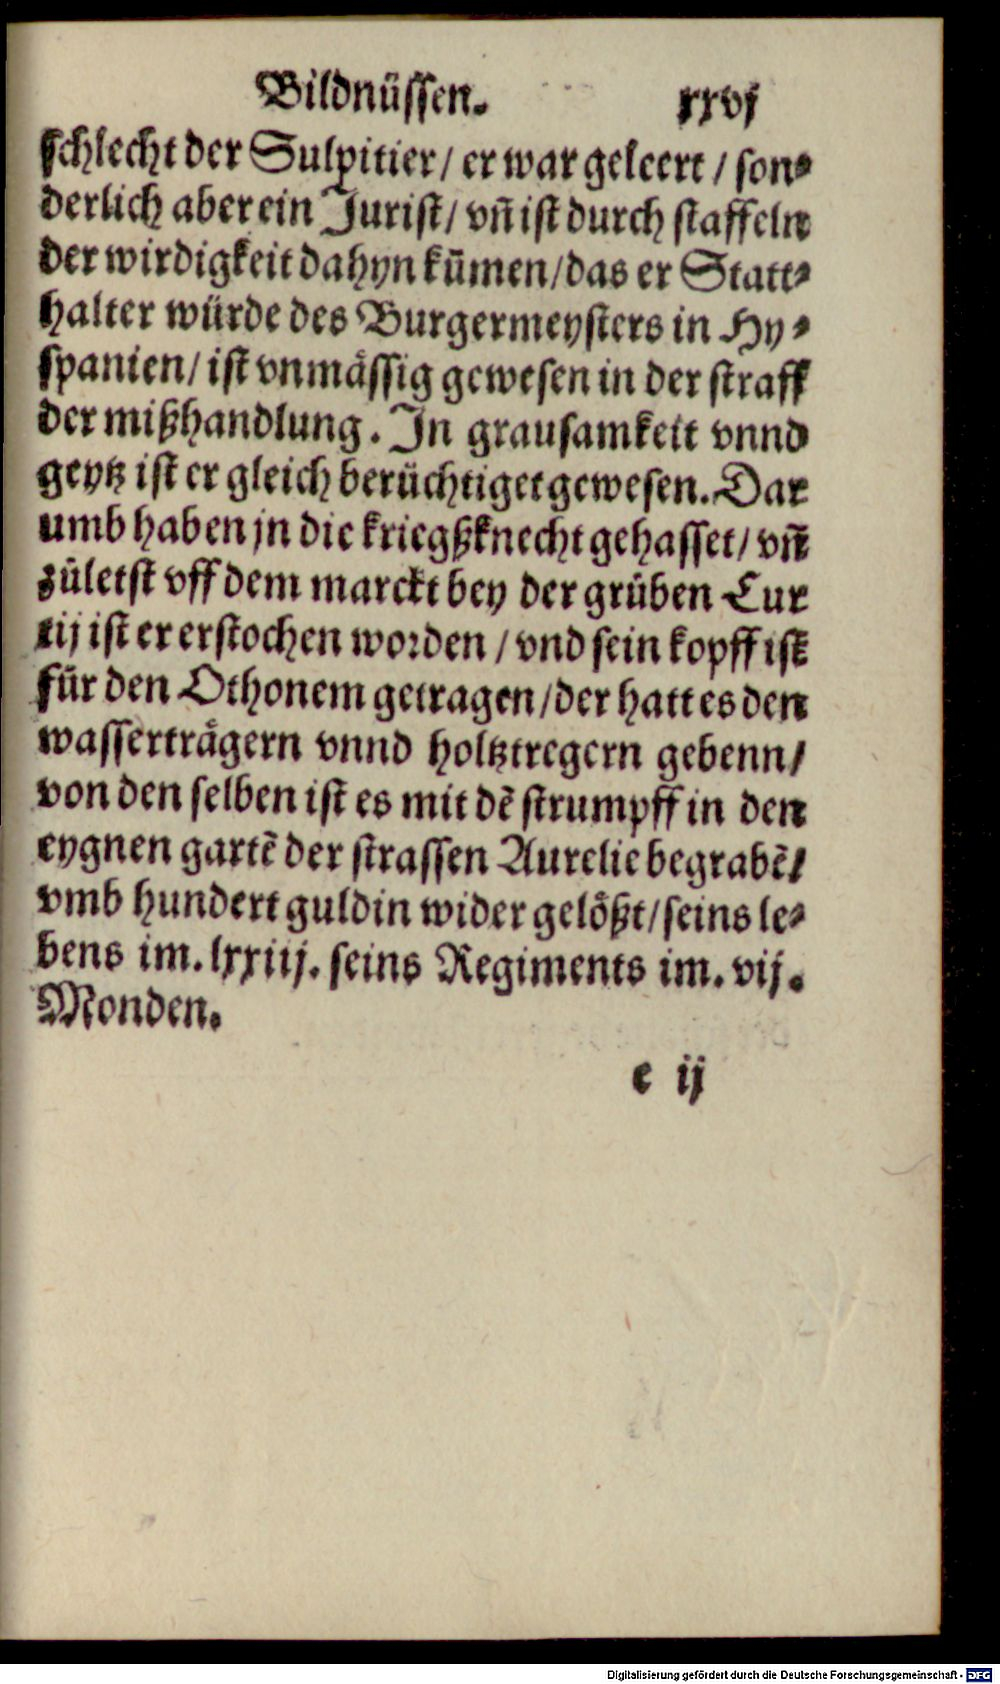 Bildnüssen. xxvj
schlecht der Sulpitier/ er war geleert/ son⸗
derlich aber ein Jurist/ vn̄ ist durch staffeln
der wirdigkeit dahyn kūmen/ das er Statt⸗
halter würde des Burgermeysters in Hy⸗
spanien/ ist vnmässig gewesen in der straff
der mißhandlung. Jn grausamkeit vnnd
geytz ist er gleich berüchtiget gewesen. Dar
umb haben jn die kriegßknecht gehasset/ vn̄
zůletst vff dem marckt bey der grůben Cur
tij ist er erstochen worden/ vnd sein kopff ist
für den Othonem getragen/ der hatt es den
wasserträgern vnnd holtztregern gebenn/
von den selben ist es mit dē strumpff in den
eygnen gartē der strassen Aurelie begrabē/
vmb hundert guldin wider gelößt/ seins le⸗
bens im. lxxiij. seins Regiments im. vij.
Monden.
e ij
Digitalisierung gefördert durch die Deutsche Forschungsgemeinschaft - DFG